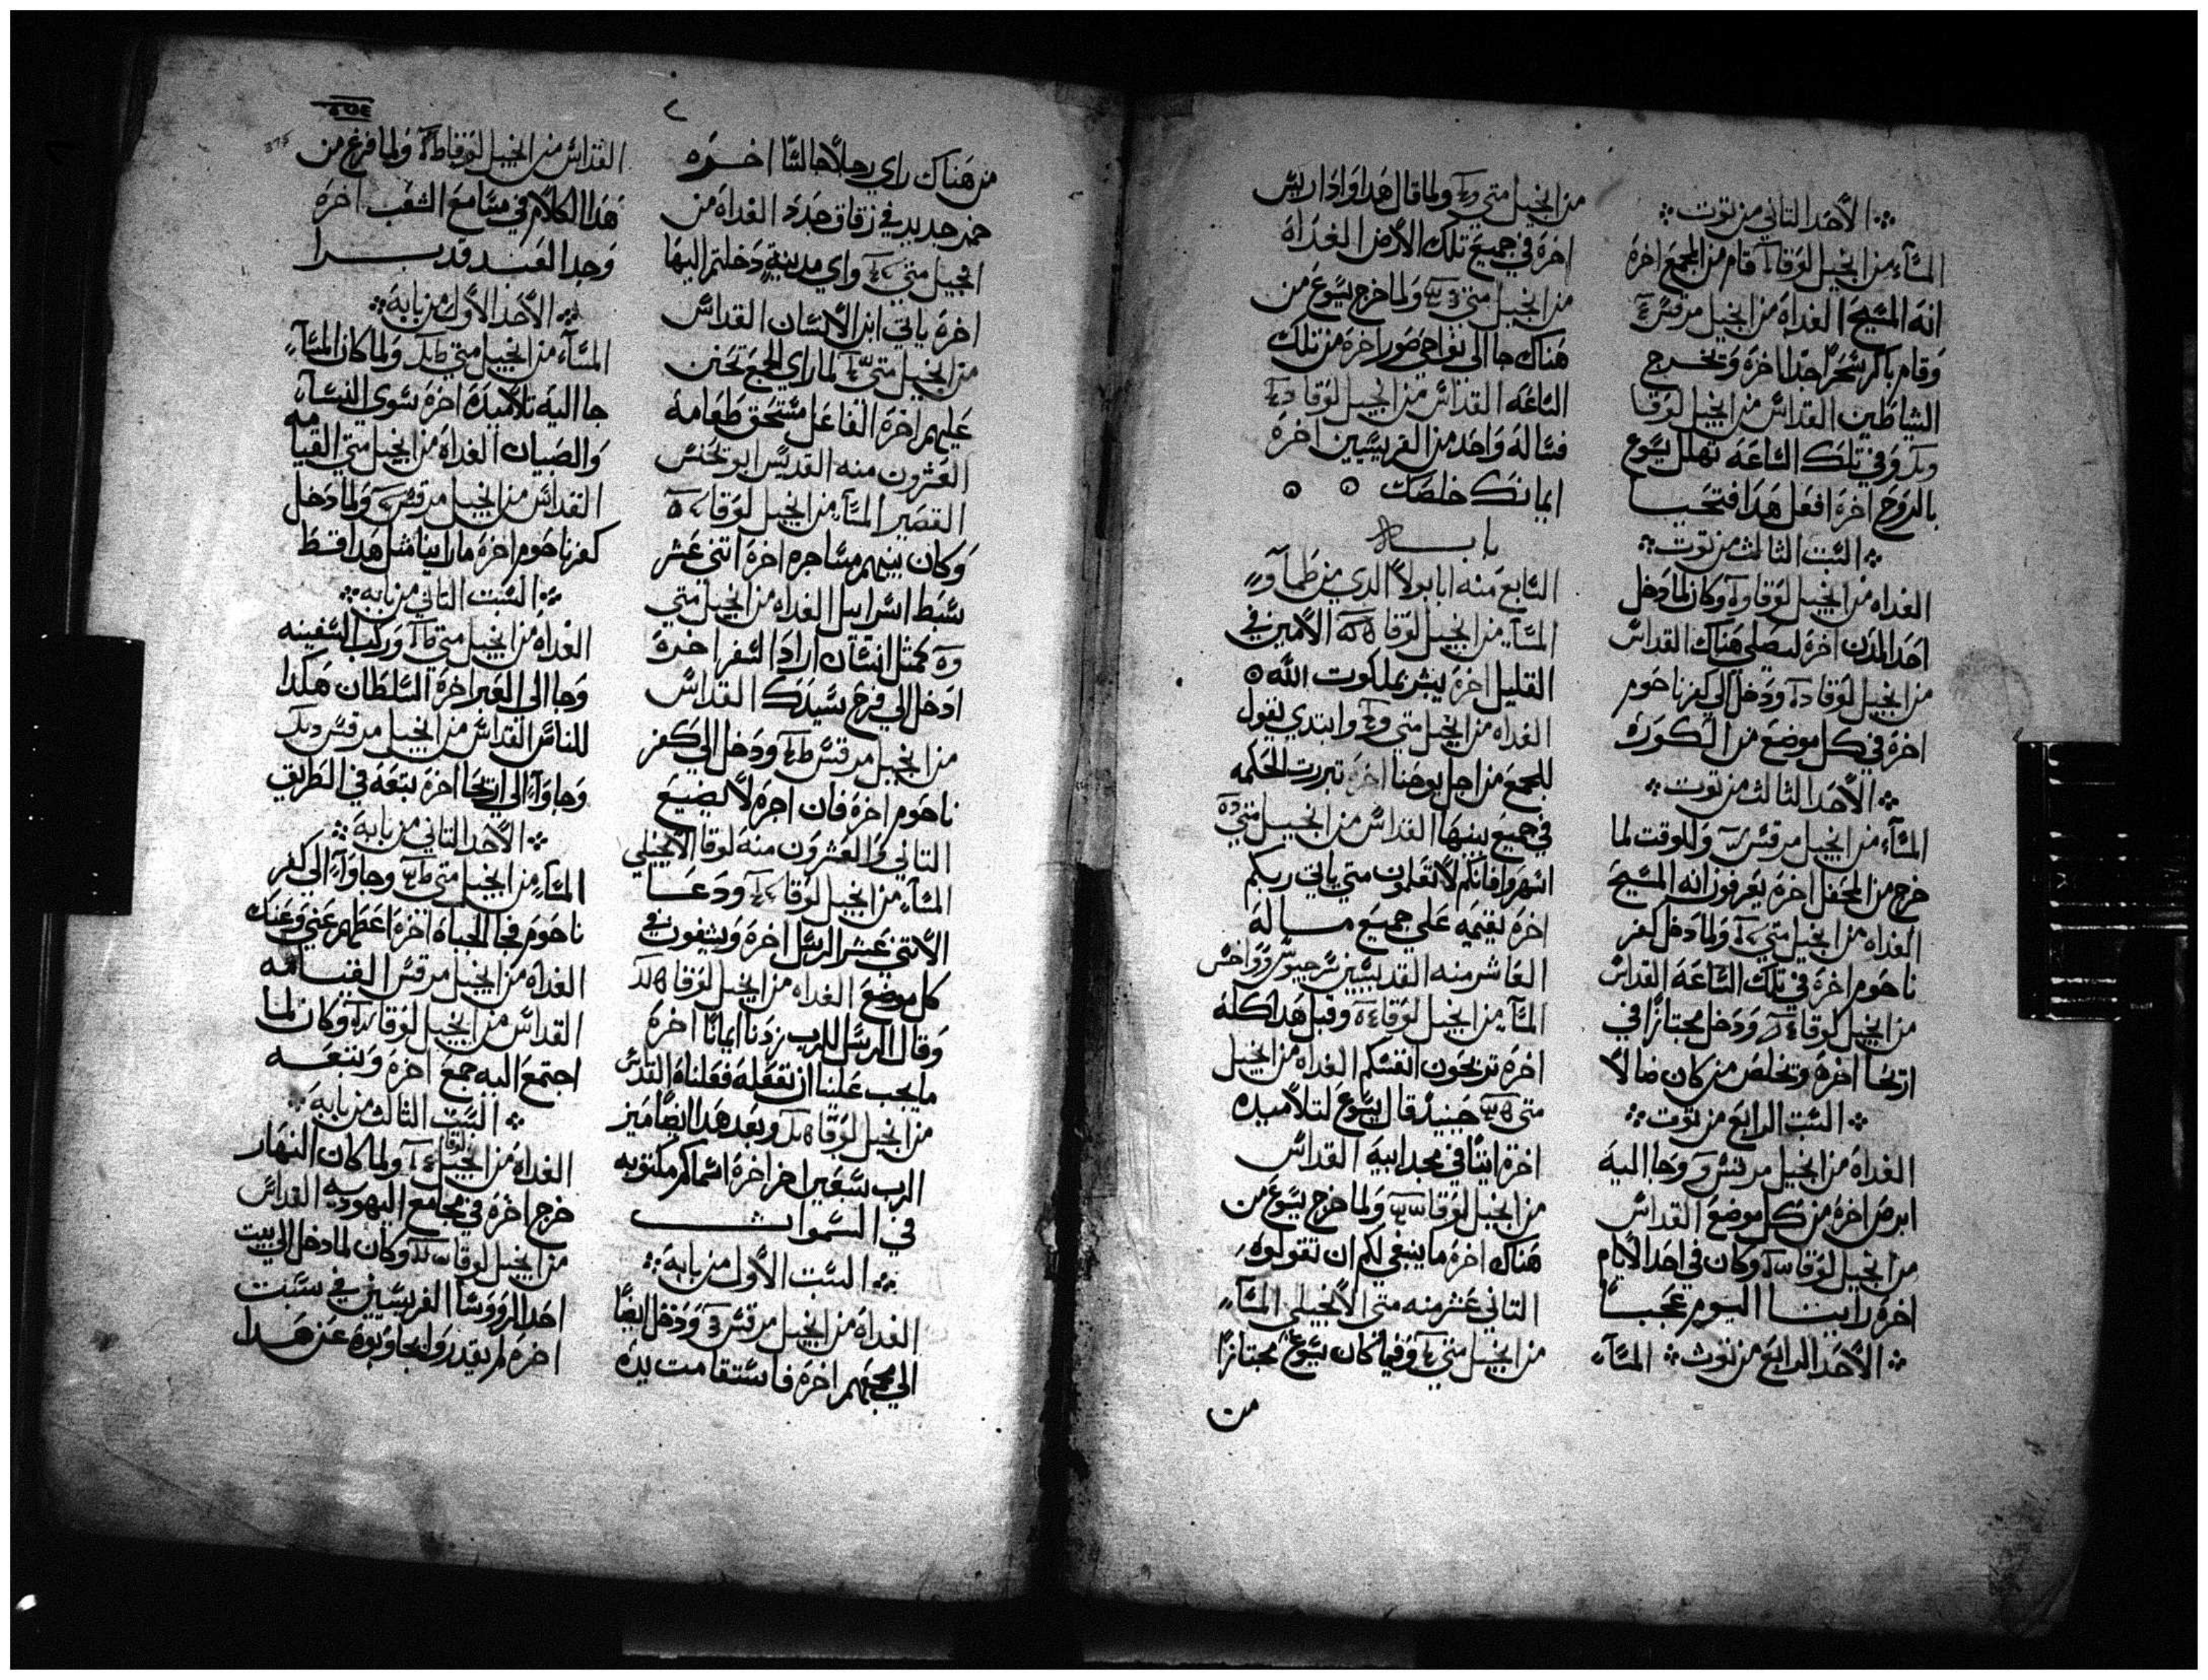 الأحد التاني من توت
المسآء من انجيل لوقا قام من المجمع اخرة
انه المسيح الغداة من انجيل مرقس
وقام باكر سحرًا جدًا اخرة وتخرج
الشياطين القداس من انجيل لوقا
وفي تلك الساعة تهلل يسوع
بالروح اخرة افعل هدا فتحيا
السبت التالت من توت
الغداه من انجيل لوقا وكان لما دخل
احد المدن اخرة ليصلي هناك القداس
من انجيل لوقا ودخل الي كفرناحوم
اخرة في كل موضع من الكورة
الأحد التالت من توت
المسآء من انجيل مرقس وللوقت لما
خرج من المحفل اخرة يعرفون انه المسيح
الغداه من انجيل متي ولما دخل كفر
ناحوم اخرة في تلك الساعة القداس
من انجيل لوقا ودخل مجتازًا في
اريحا اخرة وتخلص من كان ضالا
السبت الرابع من توت
الغداة من انجيل مرقس وجا اليه
ابرص اخرة من كل موضع القداس
من انجيل لوقا وكان في احد الأيام
اخرة راينا اليوم عجبًا
الأحد الرابع من توت المسآء
من انجيل متي ولما قال هدا وادا ريس
اخرة في جميع تلك الأرض الغداة
من انجيل متي ولما خرج يسوع من
هناك جا الي نواحي صور اخرة من تلك
الساعة القداس من انجيل لوقا
فساله واحد من الفريسيين اخرة
ايمانك خلصك
بابه
السابع منه ابا بولا الدي من طمآوه
المسآء من انجيل لوقا الأمين في
القليل اخرة يبشر بملكوت الله
الغداه من انجيل متي وابتدي يقول
للجمع من اجل يوحنا اخرة تبررت الحكمه
في جميع بنيها القداس من انجيل متي
اسهروا فانكم لا تعلمون متي ياتي ربكم
اخرة يقيمه علي جميع ماله
العاشر منه القديسين سرجيوس وواخس
المسآء من انجيل لوقا وقبل هدا كله
اخرة تربحون انفسكم الغداه من انجيل
متي حينيد قال يسوع لتلاميده
اخرة ايتنا في مجد ابيه القداس
من انجيل لوقا ولما خرج يسوع من
هناك اخرة ما ينبغي لكم ان تقولوه
التاني عشر منه متي الأنجيلي المسآء
من انجيل متي وفيما كان يسوع مجتازًا
من
من هناك راي رجلا جالسًا اخرة
خمر جديد في زقاق جدد الغداه من
انجيل متي واي مدينة دخلتم اليها
اخرة ياتي ابن الأنسان القداس
من انجيل متي لما راي الجمع تحنن
عليهم اخرة الفاعل مستحق طعامه
العشرون منه القديس ابو يحنس
القصير المسآء من انجيل لوقا
وكان بينهم مشاجره اخرة اتني عشر
سبط اسراييل الغداه من انجيل متي
كمتل انسان اراد السفر اخرة
ادخل الي فرح سيدك القداس
من انجيل مرقس ودخل الي كفر
ناحوم اخرة فان اجرة لا يضيع
التاني والعشرون منه لوقا الأنجيلي
المسآء من انجيل لوقا ودعا
الأتني عشر الرسل اخرة ويشفون في
كل موضع الغداه من انجيل لوقا
وقال الرسل للرب زدنا ايمانًا اخرة
ما يجب علينا ان نفعله فعلناه القداس
من انجيل لوقا وبعد هدا ايضًا ميز
الرب سبعين اخر اخرة اسماكم مكتوبه
في السموات
السبت الأول من بابه
الغداة من انجيل مرقس ودخل ايضًا
الي مجمعهم اخرة فاستقامت يده
القداس من انجيل لوقا ولما فرغ من
هدا الكلام في مسامع الشعب اخرة
وجدا العبد قد برا
الأحد الأول من بابه
المسآء من انجيل متي ولما كان المسآء
جا اليه تلاميده اخرة سوي النسآء
والصبيان الغداة من انجيل متي القيامه
القداس من انجيل مرقس ولما دخل
كفرناحوم اخرة ما راينا متل هدا قط
السبت التاني من بابه
الغداة من انجيل متي وركب السفينه
وجا الي العبر اخرة السلطان هكدا
للناس القداس من انجيل مرقس
وجاوآء الي اريحا اخرة يتبعه في الطريق
الأحد التاني من بابه
المسآء من انجيل متي وجاوآء الي كفر
ناحوم فجا الجباة اخرة اعطهم عني وعنك
الغداة من انجيل مرقس القيامه
القداس من انجيل لوقا وكان لما
اجتمع اليه جمع اخرة وتبعه
السبت التالت من بابه
الغداه من انجيل لوقا ولما كان النهار
خرج اخرة في مجامع اليهوديه القداس
من انجيل لوقا وكان لما دخل الي بيت
احد الرووسآ الفريسيين في سبت
اخرة لم يقدروا يجاوبوه عن هدا